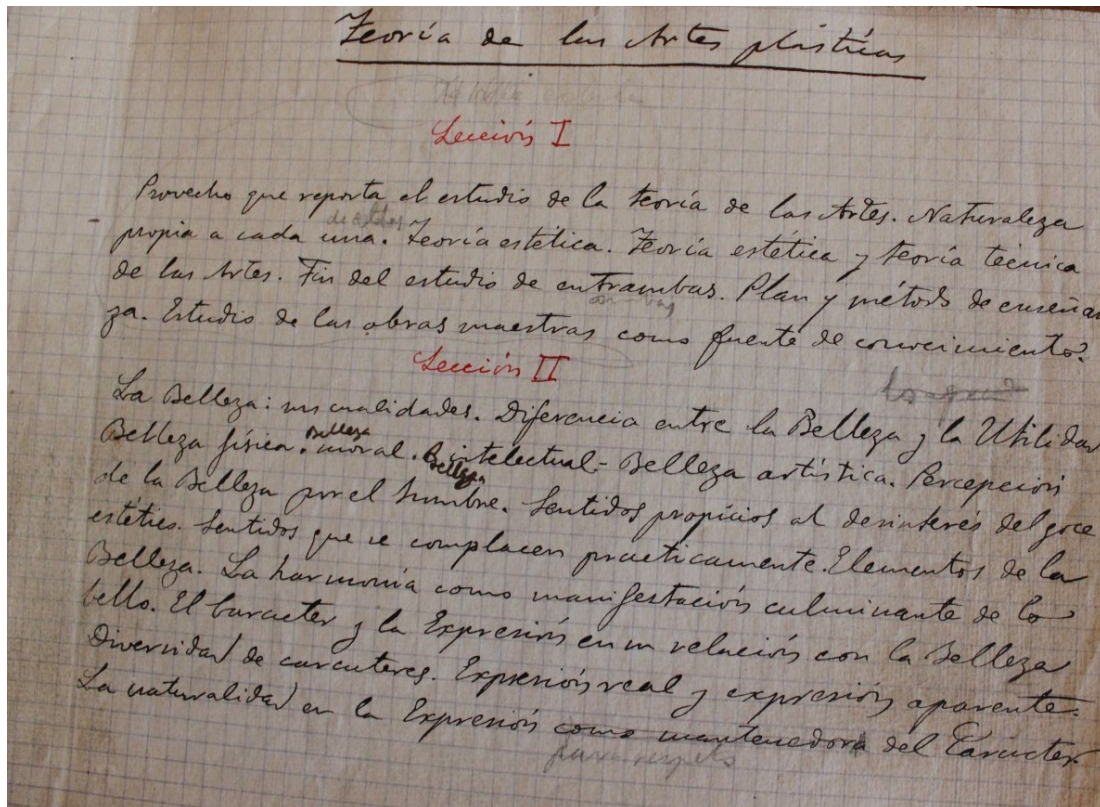 Teoría de las Artes plásticas
Lección I
Provecho que reporta el estudio de la teoría de las Artes. Naturaleza
propia a cada una. Teoría estética. Teoría estética y teoría técnica
de las Artes. Fin del estudio de entrambas. Plan y método de enseñan
za. Estudio de las obras maestras como fuente de conocimiento.
Lección II
La Belleza: sus cualidades. Diferencia entre la Belleza y la Utilidad
Belleza física. Belleza moral. Belleza intelectual - Belleza artística. Percepción
de la Belleza por el hombre. Sentidos propicios al desinterés del goce
estético. Sentidos que se complacen practicamente. Elementos de la
Belleza. La harmonía como manifestación culminante de lo
bello. El Caracter y la Expresión en su relación con la Belleza
Diversidad de caracteres. Expresión real y expresión aparente.
La naturalidad en la Expresión como mantenedora del Carácter